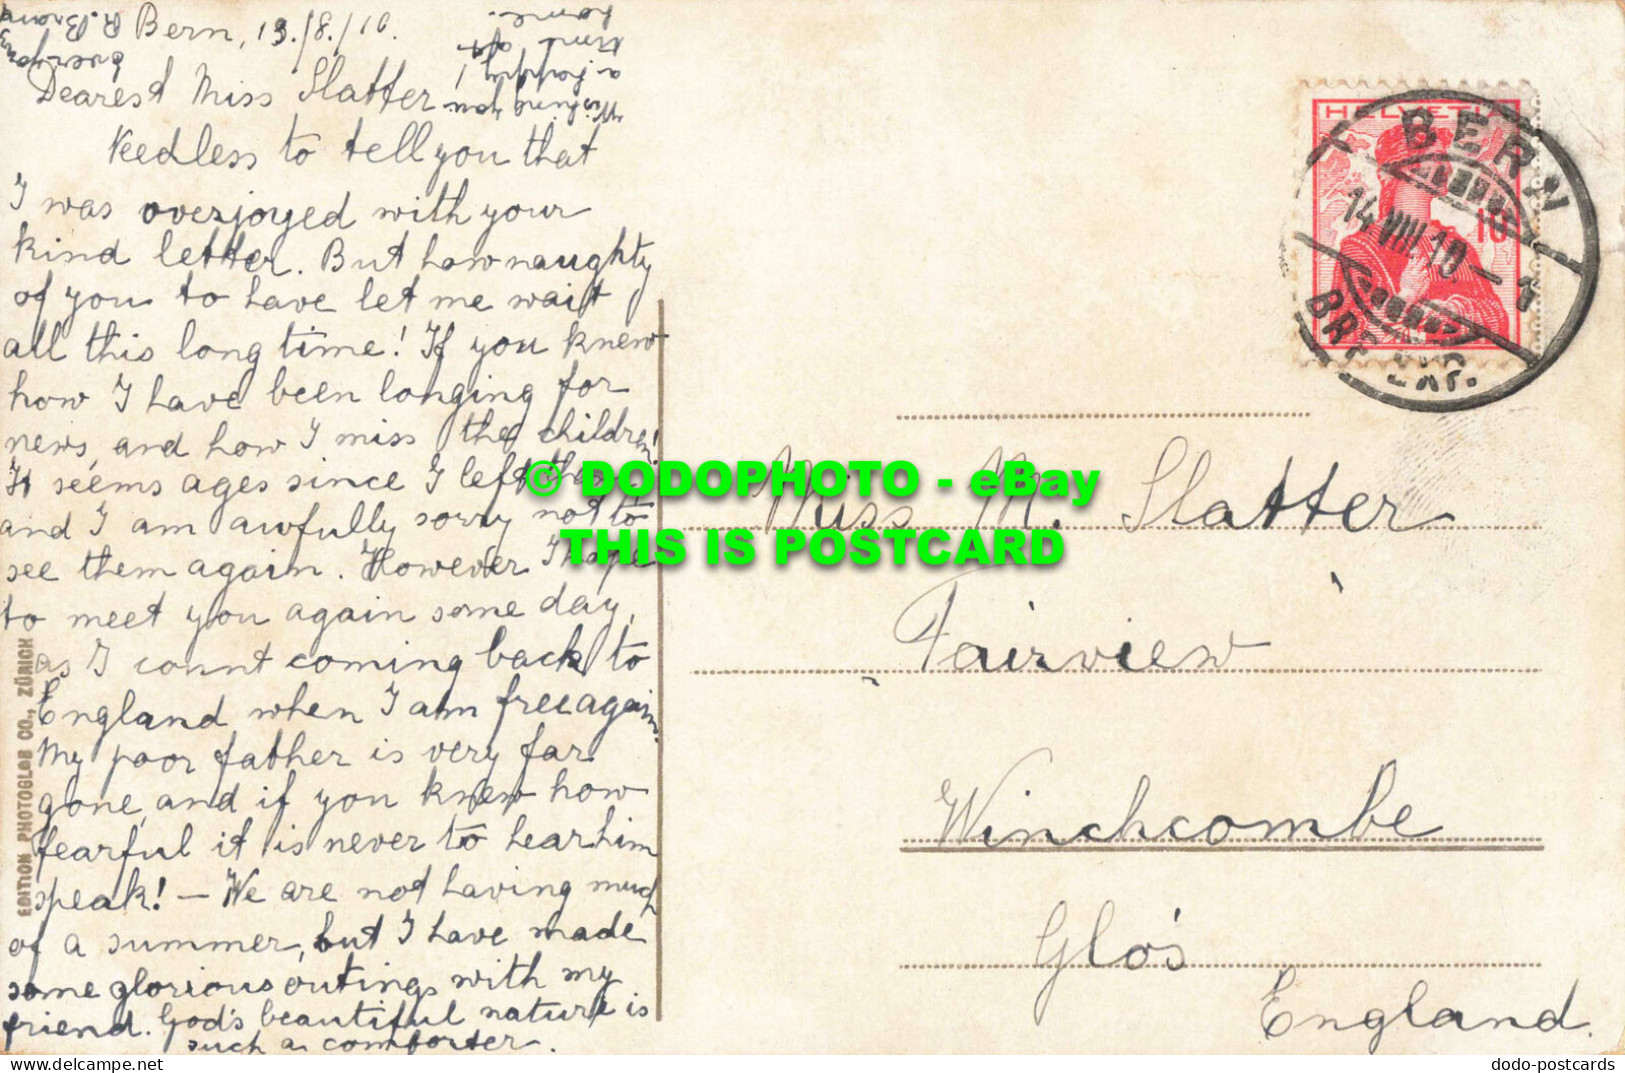 Bern, 13./8./10.
Dearest Miss Slatter,
Needless to tell you that
I was overjoyed with your
kind letter. But how naughty
of you to have let me wait
all this long time! If you knew
how I have been longing for
news, and how I miss the children!
It seems ages since I left them
and I am awfully sorry not to
see them again. However I hope
to meet you again some day,
as I count coming back to
England when I am free again.
My poor father is very far
gone, and if you knew how
fearful it is never to hear him
speak! – We are not having much
of a summer, but I have made
some glorious outings with my
friend. God's beautiful nature is
such a comforter.
Wishing you
a jolly
time at
home.
R. Brand
EDITION PHOTOGLOB CO., ZÜRICH
HELVETIA
10
BERN
14.VIII.10–1
BRF. EXP.
Miss M. Slatter
Fairview
Winchcombe
Glo's
England.
© DODOPHOTO - eBay
THIS IS POSTCARD
dodo-postcards